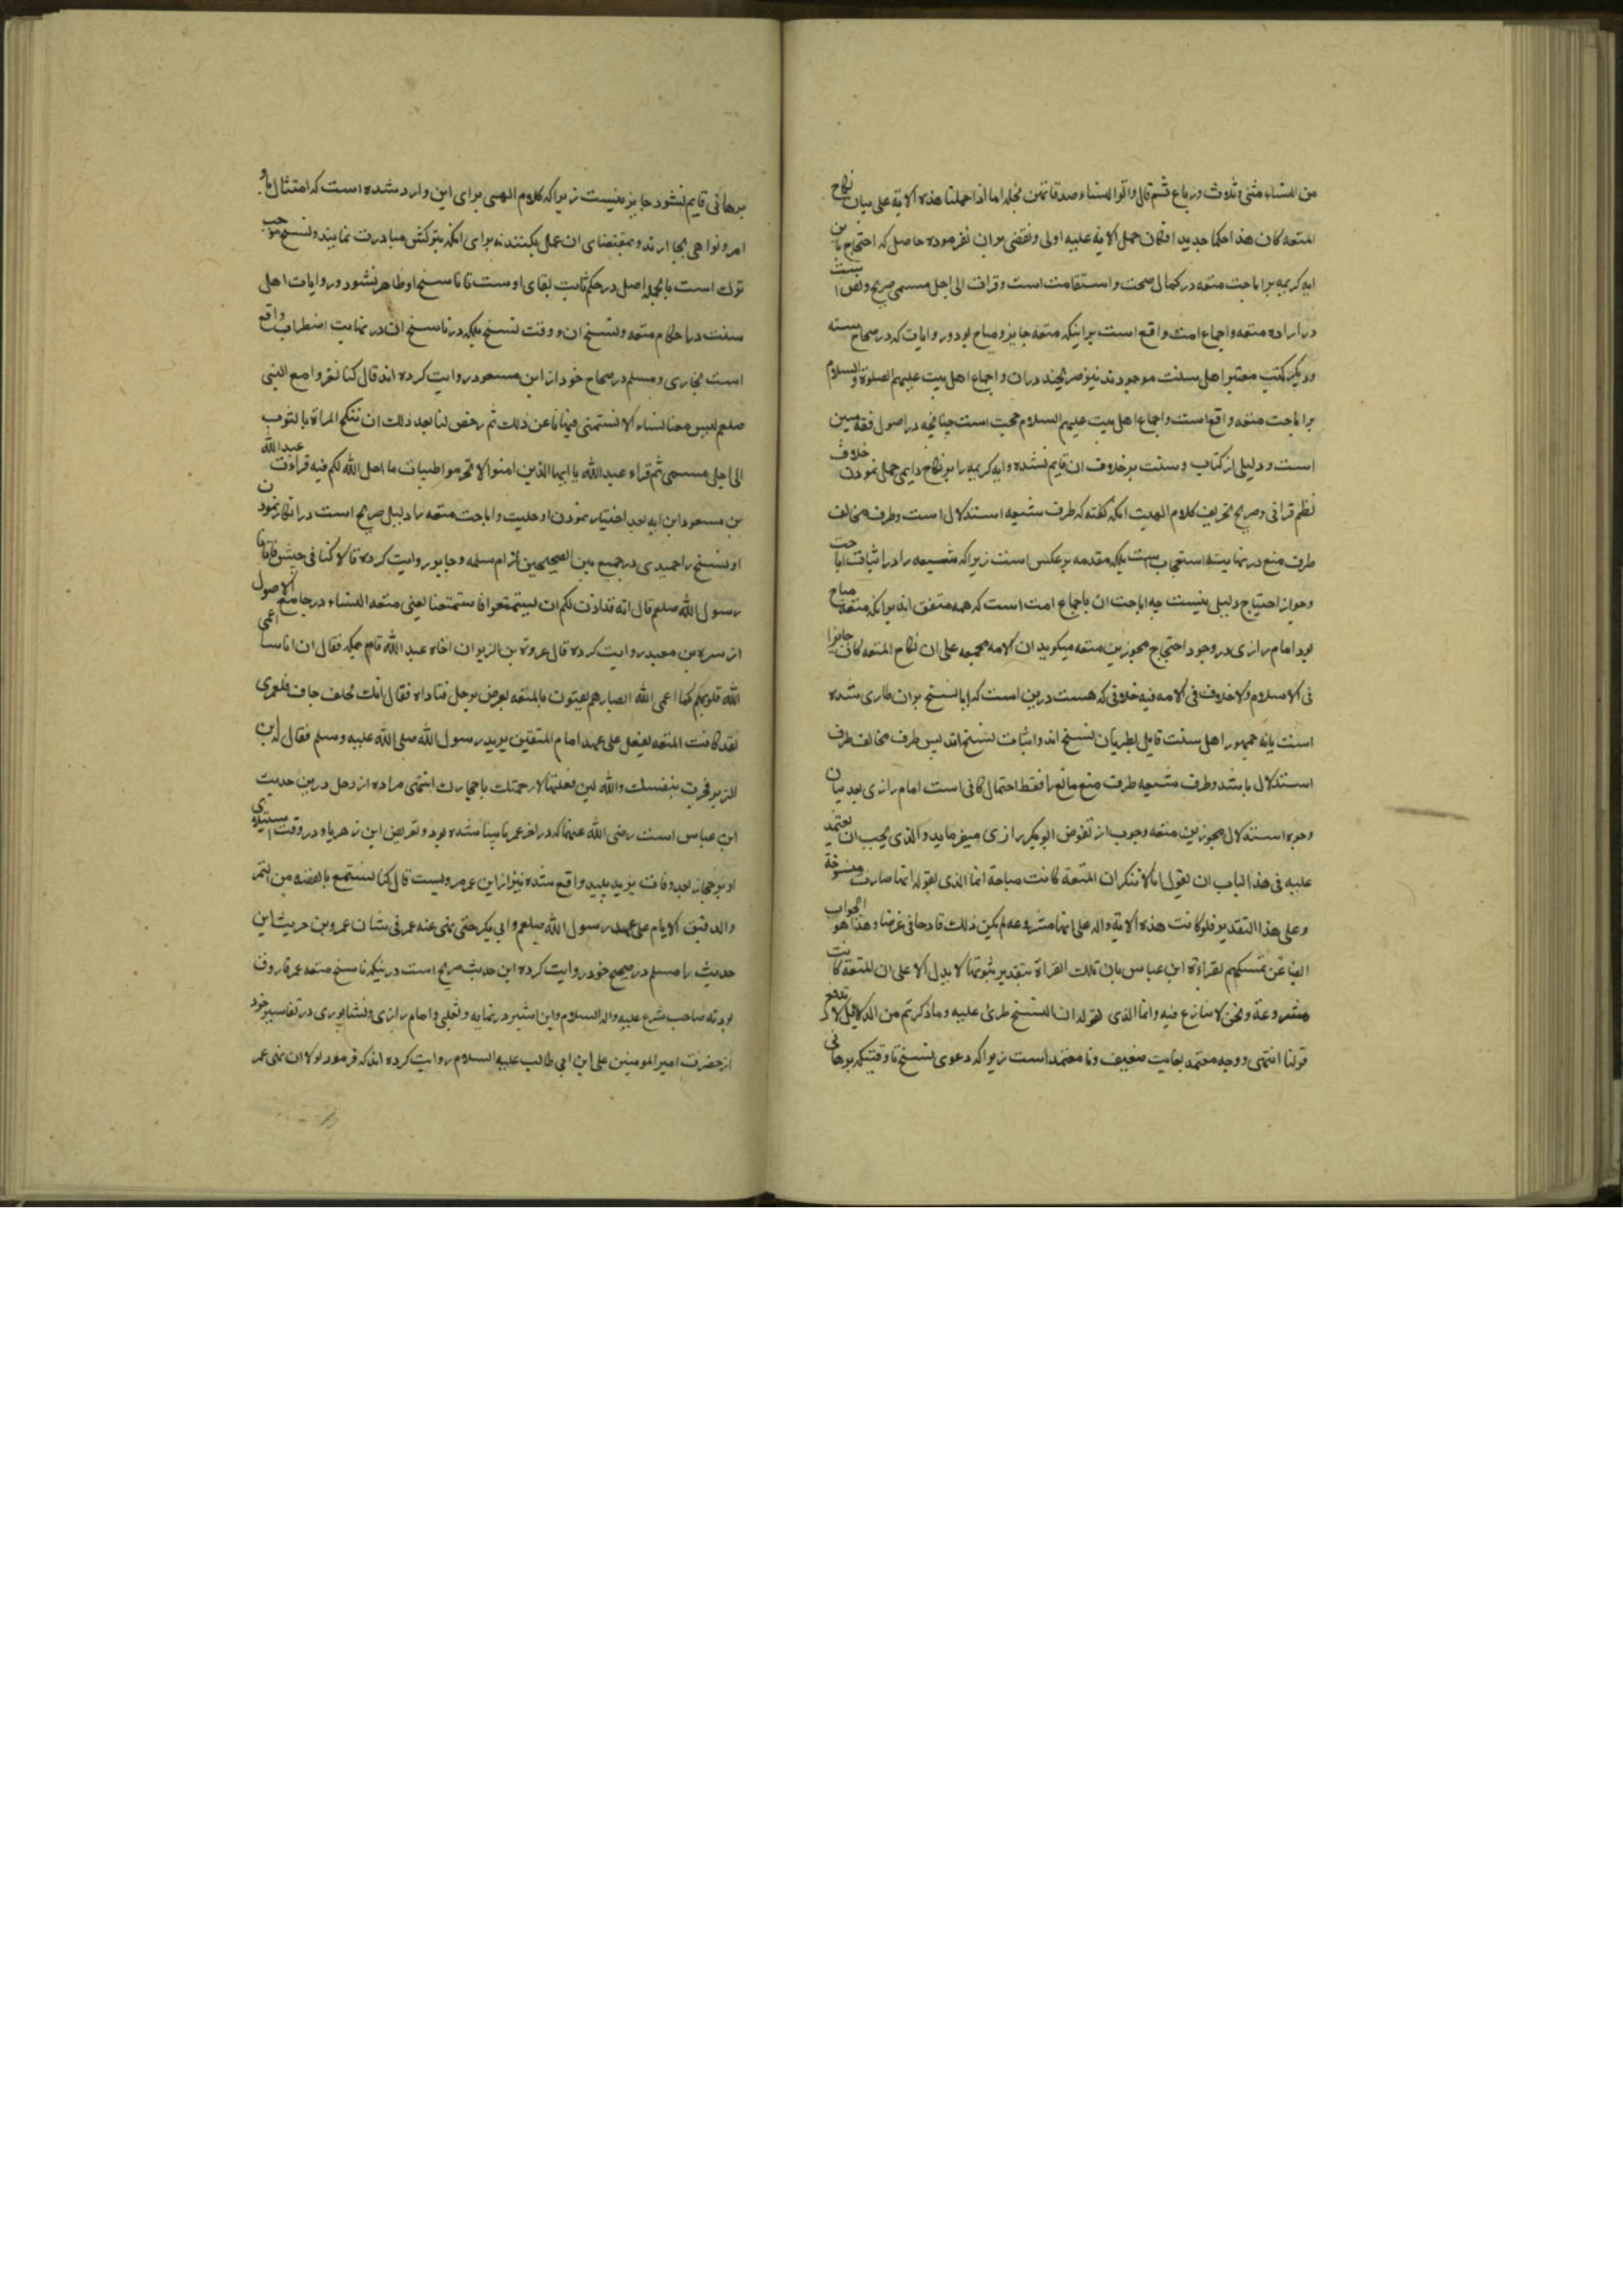 من النساء مثنی و ثلاث و رباع ثم قال و اتوا النساء صدقاتهن نحلة اما اذا حملنا هذه الایة علی بیان نکاح
المتعه کان هذا حکما جدیدا فکان حمل الایة علیه اولی و نقضی بران نفرموده حاصل که احتجاج باین
ایه کریمه بر اباحت متعه در کمال صحت و استقامت است و قرات الی اجل مسمی صریح و نص است
در اراده متعه و اجماع امت واقع است براینکه متعه جایز و مباح بود و روایات که در صحاح سته
و دیگر کتب معتبر اهل سنت موجودند نیز صریحند دران و اجماع اهل بیت علیهم الصلوة و السلام
بر اباحت متعه واقع است و اجماع اهل بیت علیهم السلام حجت است چنانچه در اصول فقه مبین
است و دلیلی از کتاب و سنت بر خلاف ان قایم نشده و ایه کریمه را بر نکاح دایمی حمل نمودن خلاف
نظم قرانی و صریح تحریف کلام الهیت انکه گفته که طرف شیعه استدلال است و طرف مخالف
طرف منع در نهایت استعجاب است بلکه مقدمه برعکس است زیرا که شیعه را در اثبات اباحت
و جواز احتیاج دلیلی نیست چه اباحت ان باجماع امت است که همه متفق اند برانکه متعه مباح
بود امام رازی در وجود احتجاج مجوزین متعه میگوید ان الامه مجمعه علی ان نکاح المتعه کان جایزا
فی الاسلام و لا خلاف فی الامه فیه خلافی که هست درین است که ایا نسخ بران طاری شده
است یا نه جمهور اهل سنت قایل بطریان نسخ اند و اثبات نسخ اند پس طرف مخالف طرف
استدلال باشد و طرف شیعه طرف منع مانع را فقط احتمال کافی است امام رازی بعد بیان
وجوه استدلال مجوزین متعه و جواب از نقوض ابوبکر رازی میفرماید و الذی یجب ان یعتمد
علیه فی هذا الباب ان نقول انا لا ننکر ان المتعة کانت مباحة انما الذی نقوله انها صارت منسوخة
و علی هذا التقدیر فلو کانت هذه الایة داله علی انها مشروعه لم یکن ذلک قادحا فی غرضنا و هذا هو الجواب
ایضا عن تمسکهم بقراءة ابن عباس بان تلک القراة بتقدیر ثبوتها لا یدل الا علی ان المتعة کانت
مشروعة و نحن لا ننازع فیه و انما الذی نقوله ان النسخ طرئ علیه و ما ذکرتم من الدلایل لا یدفع
قولنا انتهی و وجه معتمد بغایت ضعیف و نامعتمد است زیرا که دعوی نسخ تا وقتیکه برهانی
برهانی قایم نشود جایز نیست زیرا که کلام الهی برای این وارد شده است که امتثال باو
امر و نواهی بجا ارند و بمقتضای ان عمل بکنند نه برای انکه بترکش مبادرت نمایند و نسخ موجب
ترک است بالجمله اصل در حکم ثابت بقای اوست تا ناسخ او ظاهر نشود و روایات اهل
سنت در احکام متعه و نسخ ان و وقت نسخ بلکه در ناسخ ان در نهایت اضطراب واقع
است بخاری و مسلم در صحاح خود از ابن مسعود روایت کرده اند قال کنا نغزوا مع النبی
صلعم لیس معنا نساء الا نستمنی فنهانا عن ذلک ثم رخص لنا بعد ذلک ان ننکح المراة بالثوب
الی اجل مسمی ثم قراء عبدالله یا ایها الذین امنوا لا تحرموا طیبات ما احل الله لکم فیه قراءت عبدالله
بن مسعود این ایه بعد اختیار نمودن او حلیت و اباحت متعه را دلیل صریح است در انکار نمودن
او نسخ را حمیدی در جمع بین الصحیحین از ام سلمه و جابر روایت کرده قالا کنا فی جیش فاتانا
رسول الله صلعم قال انه قد اذن لکم ان تستمتعوا فاستمتعنا یعنی متعه النساء در جامع الاصول
از سبره بن معبد روایت کرده قال عروة بن الزبیر ان اخاه عبد الله قام بمکه فقال ان اناسا اعمی
الله قلوبهم کما اعمی الله ابصارهم یفتون بالمتعه یعرض برجل فناداه فقال انک لجلف جاف فلعمری
لقد کانت المتعه یفعل علی عهد امام المتقین یرید رسول الله صلی الله علیه و سلم فقال له ابن
الزبیر فجرب بنفسک و الله لئن فعلتها لارجمنک باحجارک انتهی مراده از رجل درین حدیث
ابن عباس است رضی الله عنهما که در اخر عمر نابینا شده بود و تعریض ابن زهریا و در وقت استیلای
او بر حجاز بعد وفات یزید پلید واقع شده نیز از ابن عمر مرویست قال کنا نستمتع بالقبضه من التمر
والدقیق الایام علی عهد رسول الله صلعم و ابی بکر حتی نهی عنه عمر فی شان عمرو بن حریث این
حدیث را مسلم در صحیح خود روایت کرده این حدیث صریح است درینکه ناسخ متعه عمر فاروق
بود نه صاحب شرع علیه و اله السلام و ابن اثیر در نهایه و ثعلبی و امام رازی و نیشاپوری در تفاسیر خود
از حضرت امیر المومنین علی ابن ابی طالب علیه السلام روایت کرده اند که فرمود لولا ان نهی عمر